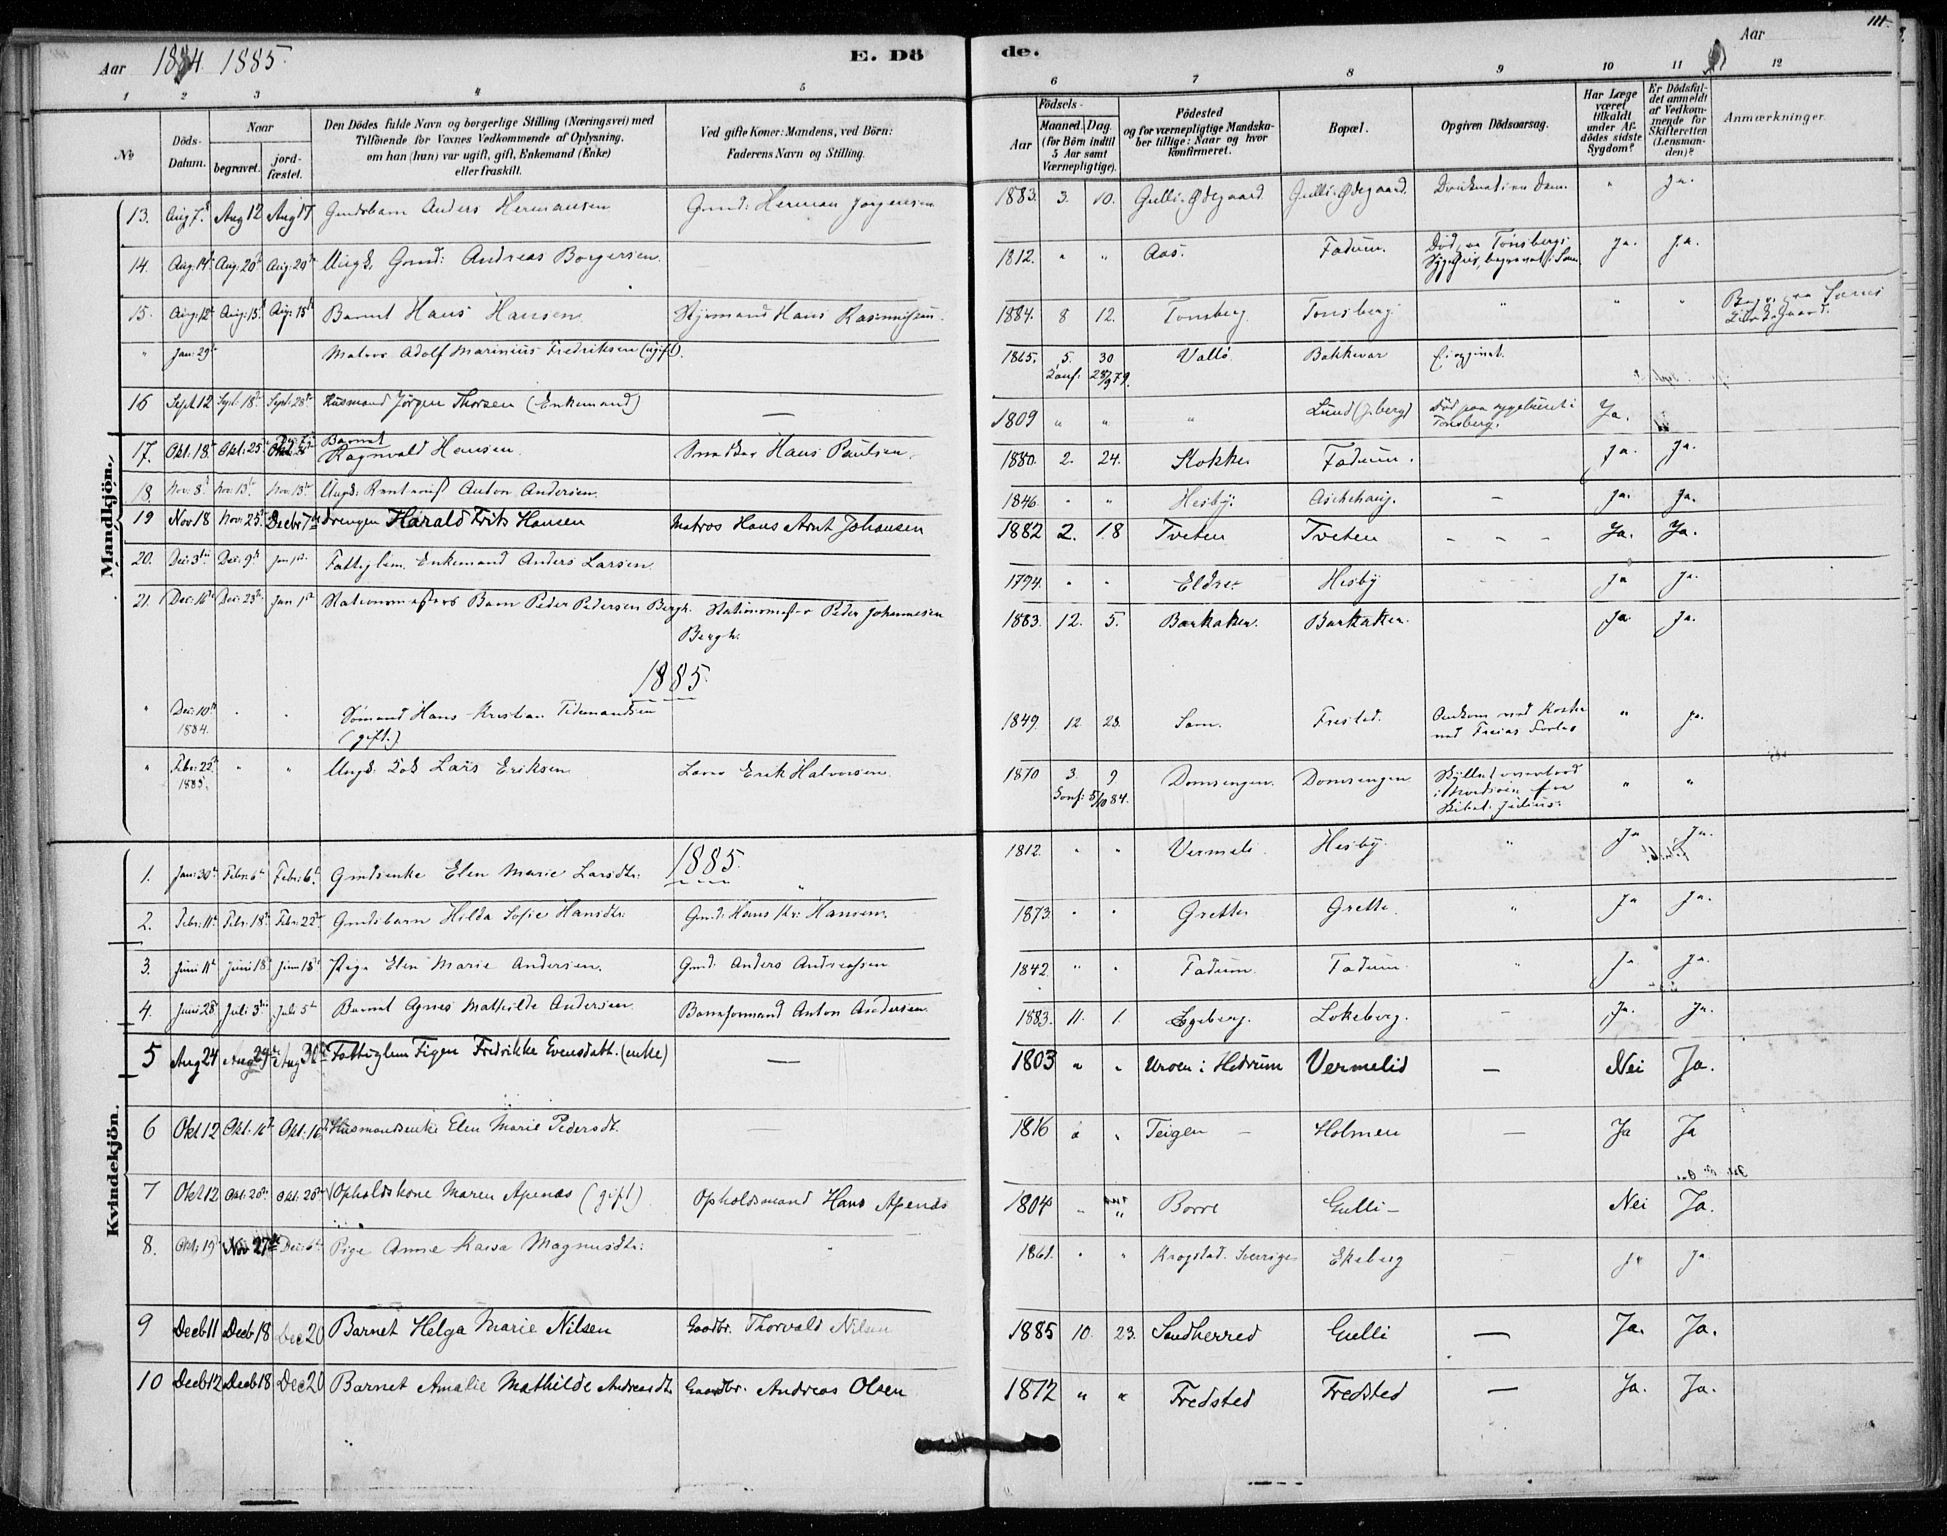 Aar 1884 1885. E. Dö de. Aar 111.
1 2 3 4 5 6 7 8 9 10 11 12
No Döds-Datum. Naar begravet. jordfæstet. Den Dödes fulde Navn og borgerlige Stilling (Næringsvei) med Tilföiende for Voxnes Vedkommende af Oplysning, om han (hun) var ugift, gift, Enkemand (Enke) eller fraskilt. Ved gifte Koner: Mandens, ved Börn: Faderens Navn og Stilling. Födsels- Aar Maaned. Dag. (for Börn indtil 5 Aar samt Værnepligtige). Födested og for værnepligtige Mandskaber tillige: Naar og hvor konfirmeret. Bopæl. Opgiven Dödsaarsag. Har Læge været tilkaldt under Afdødes sidste Sygdom? Er Dödsfaldet anmeldt af Vedkommende for Skifteretten (Lensmanden)? Anmærkninger.
Mandkjön.
13. Aug 7. Aug 12 Aug 17 Gmdsbarn Anders Hermansen Gmd: Herman Jörgensen 1883. 3. 10. Gulli-Ødegaard Gulli-Ødegaard. Druknet i en Dam. " Ja.
14. Aug: 14 Aug: 20 Aug: 20 Ungk. Gmd: Andreas Borgersen. 1812. " " Aas. Fadum. Død paa Tönsbergs Sygehus, begravet i Sem Ja. Ja.
15. Aug: 12 Aug: 15 Aug: 15 Barnet Hans Hansen Styrmand Hans Rasmussen. 1884. 8 12. Tönsberg Tönsberg. " " " Begr. paa Sems Kirkegaard.
" Jan: 29 Matros Adolf Marinius Fredriksen (ugift). 1865. 5. 30 Konf. 28/9 79. Vallö. Bakkevar Ei opgivet.
16 Sept 12 Sept 18 Sept: 28 Husmand Jörgen Thorsen (Enkemand) — 1809 " " " Lund (Jarlsberg) död paa sygehuset i Tönsberg. Ja.
17. Okt: 18 Okt: 25 Barnet Ragnvald Hansen. Snedker Hans Paulsen. 1880. 2. 24. Stokke Fadum. Ja. Ja.
18. Nov: 8 Nov: 13 Nov: 13 Ungk: Rentenist Anton Andersen. 1846. " " Hesby. Askehaug. — Ja. Ja.
19 Nov 18 Nov: 25 Decbr 7 Drengen Harald Frits Hansen Matros Hans Arnt Johansen 1882 2. 18 Tveten Tveten - - - Ja. Ja.
20. Dec: 3 Dec: 9 Jan 1 Fattiglem. Enkemand Anders Larsen. 1794. " " Eldre Hesby Ja Ja.
21. Dec: 16 Dec: 23 Jan 1 Stationsmesters Barn Peder Pedersen Bergh. Stationsmester Peder Johannesen Bergh. 1883. 12. 5. Barkaker. Barkaker. Ja Ja.
1885.
" Dec: 10 1884. " " Sömand Hans Kristian Tidemandsen (gift.) 1849. 12 28. Sem. Frested. Omkom med Kosten ved Freias Forlis " Ja.
" Febr: 22 1885. " " Ungk. Kok Lars Eriksen Læs Erik Halvorsen. 1870 3. 9 Konf: 5/10 84. Domsengen. Domsengen Skyllet overbord i Nordsöen fra Skibet Julius. " "
Kvindekjön.
1885.
1. Jan: 30 Febr: 6 Febr: 6 Gmdsenke Elen Marie Larsdtr: " 1812. " " Vermeli. Hesby. " Ja Ja.
2. Febr: 11 Febr: 18 Febr: 22 Gmdsbarn Hilda Sofie Hansdtr: Gmd: Hans Kr: Hansen. 1873. " " Grette Grette. " Ja Ja.
3. Juni 11 Juni 18 Juni 18 Pige Elen Marie Andersen. Gmd: Anders Andreassen 1842. " " Fadum. Fadum. " Ja Ja.
4. Juni 28 Juli 3 Juli 5 Barnet Agnes Mathilde Andersen Baneformand Anton Andersen. 1883. 11. 1. Egeberg. Lokeberg. — Ja. Ja.
5 Aug 24 Aug 29 Aug 30 Fattiglem Pigen Fredrikke Evensdatt. (enke) — 1803 " " Uroen i Hedrum Vermelid — Nei Ja.
6 Okt 12 Okt. 16 Okt: 16 Husmandsenke Elen Marie Pedersdt. — 1816 " " Teigen — Holmen — Ja Ja
7 Okt 12 Okt: 20 Okt: 20 Opholdskone Maren Apenæs (gift) Opholdsmand Hans Apenæs 1804 " " Borre Gulli — Nei Ja.
8. Okt: 19 Nov 27 Dec: 6 Pige Anne Kaisa Magnusdtr: " 1861. " " Krogstad. Sverrige Ekeberg — Ja Ja
9 Decb 11 Decb 18 Dec 20 Barnet Helga Marie Nilsen Gaardbr. Thorvald Nilsen 1885 10. 23. Sandherred Gulli — Ja. Ja.
10 Decb 12 Decb 18 Dec 20 Barnet Amalie Mathilde Andreasdt. Gaardbr. Andreas Olsen 1872 " " Fredsted Fredsted — Ja. Ja.